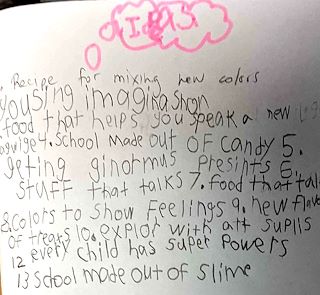 IDEAS
Recipe for mixing new colors
yousing imagination
food that helps you speak a new
4. School made out of Candy 5.
geting ginormus presints 6.
Stuff that talks 7. food that tal
8. Colors to show Feelings 9. new flavo
of treats 10. explor with art suplls
12 every child has super Powers
13 school made out of slime